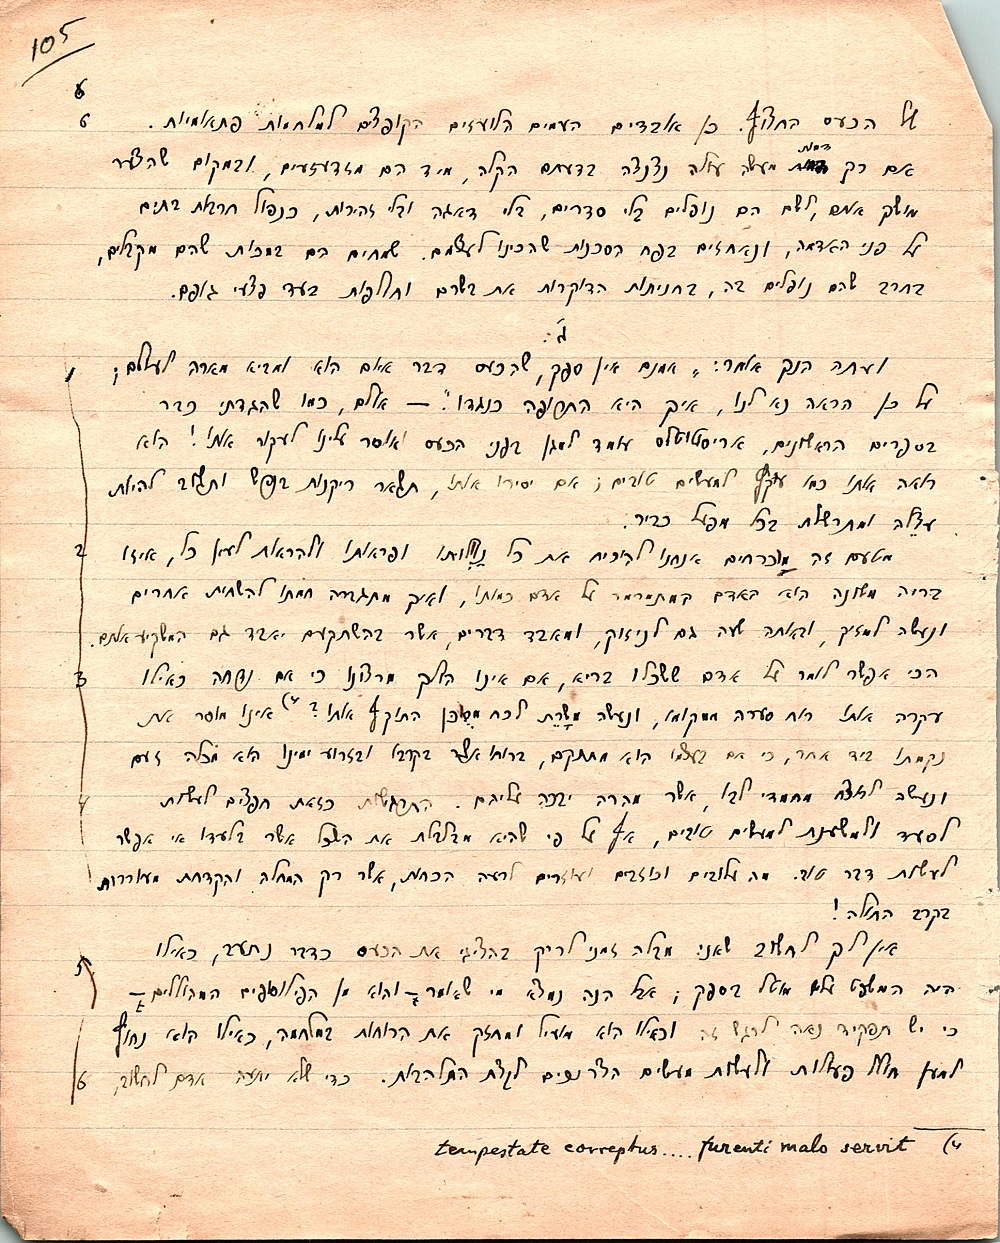 105
6
6
על הכעס החצוף. כן אובדים העמים הלועזים הקופצים למלחמות פתאומיות.
אם רק דמות מעשה עולה נצנצה בדעתם הקלה, מיד הם מזדעזעים, ובמקום שהצער
מושך אותם, לשם הם נופלים בלי סדרים, בלי דאגה ובלי זהירות, כנפול חרבות בתים
על פני האדמה, ונאחזים בפח הסכנות שהכינו לעצמם. שמחים הם במכות שהם מקבלים,
בחרב שהם נופלים בה, בחניתות הדוקרות את בשרם וחולפות בעד פצעי גופם.
ג.
1 ועתה הנך אומר: „אמנם אין ספק, שהכעס דבר איום הוא ומביא מארה לעולם;
על כן הראה נא לנו, איך היא התרופה כנגדו". — אולם, כמו שהגדתי כבר
בספרים הראשונים, אריסטוטלס עומד למגן בפני הכעס ואוסר עלינו לעקור אותו! הוא
רואה אותו כמו מקור למעשים טובים; אם יסירו אותו, תשאר ריקנות בנפש ותשוב להיות
עצלה ומתרשלת בכל מפעל כביר.
2 מטעם זה מוכרחים אנחנו להוכיח את כל נוולותו ופראותו ולהראות לעין כל, איזו
בריה משונה הוא האדם המתמרמר על אדם כמותו, ואיך מתגברה חמתו להשחית אחרים
ונעשה למזיק, ובאותה שעה גם לניזוק, ומאבד דברים, אשר בהשתקעם יאבד גם המשקיע אותם.
3 הכי אפשר לומר על אדם ששכלו בריא, אם אינו הולך מרצונו כי אם נדחה כאילו
עקרה אותו רוח סערה ממקומו, ונעשה משרת לכח מסוכן התוקף אותו? 4) אינו מוסר את
נקמתו ביד אחר, כי אם בעצמו הוא מתנקם, ברוח אשר בקרבו ובזרוע ימינו הוא מכלה זעם
4 ונעשה לרוצח מחמדי לבו, אשר מהרה יבכה עליהם. התרגשות כזאת חפצים לעשות
לסעד ולמשענת למעשים טובים, אף על פי שהיא מבלבלת את השכל אשר בלעדו אי אפשר
לעשות דבר טוב. מה עלובים וכוזבים ועוזרים לרעה הכחות, אשר רק המחלה והקדחת מעוררות
בקרב החולה!
5 אין לך לחשוב שאני מבלה זמני לריק בהציגי את הכעס כדבר נתעב, כאילו
היה המשפט עליו מוטל בספק; אבל הנה נמצא מי שאומר – והוא מן הפילוסופים המהוללים –
כי יש תפקיד נאה לרגש זה וכאילו הוא מועיל ומחזק את הרוחות במלחמה, כאילו הוא נחוץ
6 למען חולל פעולות ולעשות מעשים הצריכים לקצת התלהבות. כדי שלא יתעה אדם לחשוב,
4) tempestate correptus.... furenti malo servit